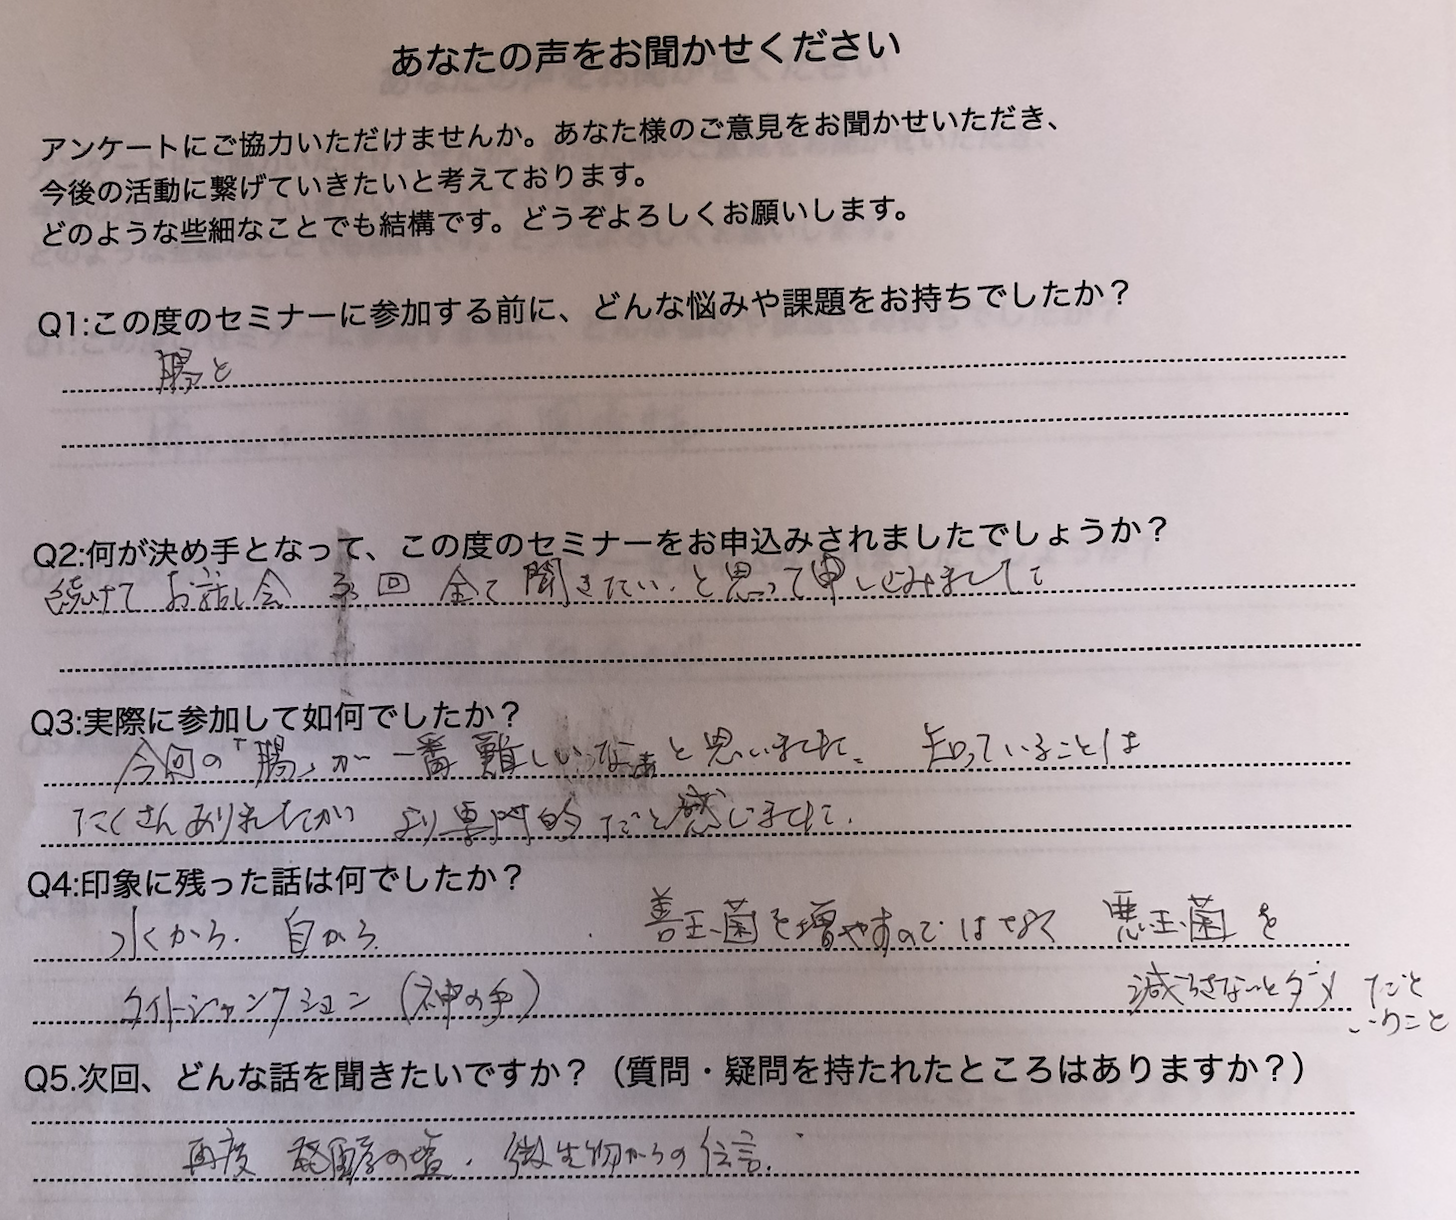 あなたの声をお聞かせください
アンケートにご協力いただけませんか。あなた様のご意見をお聞かせいただき、
今後の活動に繋げていきたいと考えております。
どのような些細なことでも結構です。どうぞよろしくお願いします。
Q1:この度のセミナーに参加する前に、どんな悩みや課題をお持ちでしたか？
腸と
Q2:何が決め手となって、この度のセミナーをお申込みされましたでしょうか？
続けてお話し会 回 全て聞きたい。と思って申し込みまして
Q3:実際に参加して如何でしたか？
今回の「腸」が一番難しいなぁと思いました。 知っていることは
たくさんありましたが より専門的だと感じました。
Q4:印象に残った話は何でしたか？
水から、自から 善玉菌を増やすのではなく 悪玉菌を
タイトジャンクション（神の手） 減らさないとダメ だと
いうこと
Q5.次回、どんな話を聞きたいですか？（質問・疑問を持たれたところはありますか？）
再度 発酵の塩、微生物からの伝言。